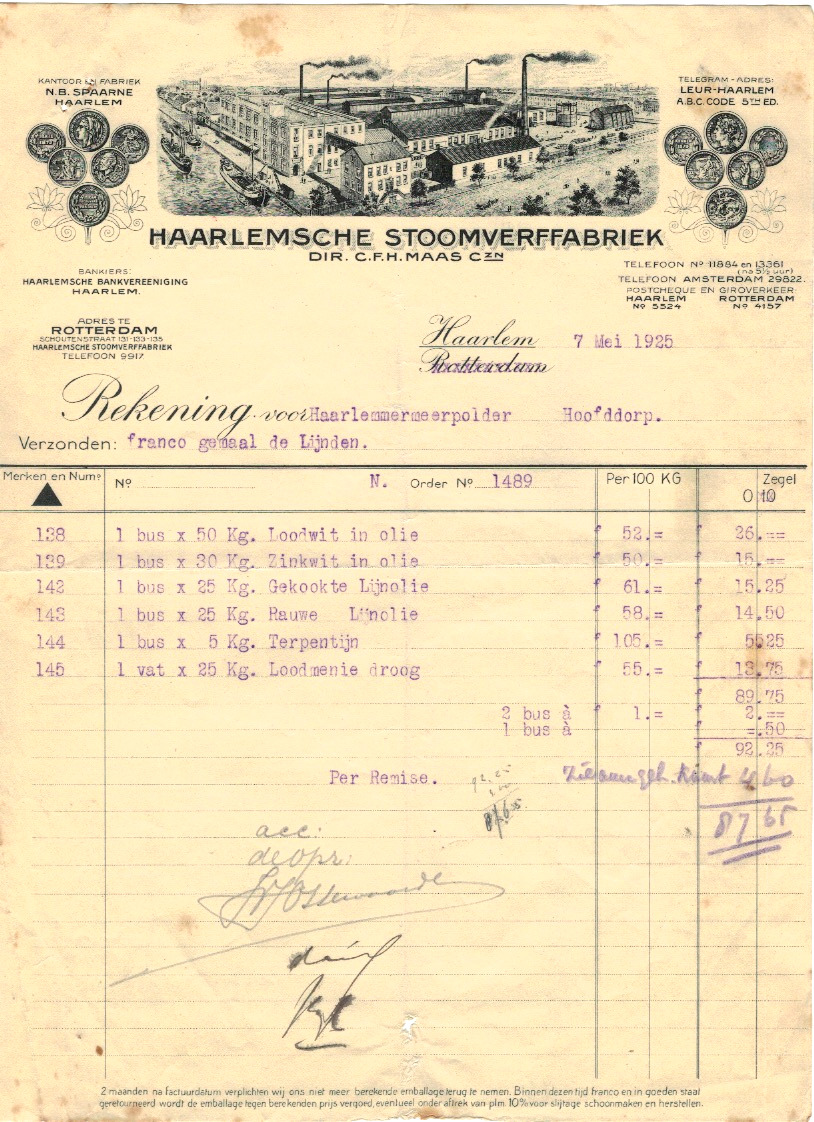 KANTOOR EN FABRIEK
N.B. SPAARNE
HAARLEM
TELEGRAM-ADRES:
LEUR-HAARLEM
A.B.C. CODE 5TH ED.
HAARLEMSCHE STOOMVERFFABRIEK
DIR. C.F.H. MAAS CZN
BANKIERS:
HAARLEMSCHE BANKVEREENIGING
HAARLEM.
TELEFOON No 11884 en 13361
(na 5½ uur)
TELEFOON AMSTERDAM 29822.
POSTCHEQUE EN GIROVERKEER:
HAARLEM ROTTERDAM
No 5524 No 4157
ADRES TE
ROTTERDAM
SCHOUTENSTRAAT 131-133-135
HAARLEMSCHE STOOMVERFFABRIEK
TELEFOON 9917
Haarlem 7 Mei 1925
Rotterdam
Rekening voor Haarlemmermeerpolder Hoofddorp.
Verzonden: franco gemaal de Lijnden.
Merken en Numo No N. Order No 1489 Per 100 KG Zegel
0 10
138 1 bus x 50 Kg. Loodwit in olie f 52.= f 26.==
139 1 bus x 30 Kg. Zinkwit in olie f 50.= f 15.==
142 1 bus x 25 Kg. Gekookte Lijnolie f 61.= f 15.25
143 1 bus x 25 Kg. Rauwe Lijnolie f 58.= f 14.50
144 1 bus x 5 Kg. Terpentijn f 105.= f 5525
145 1 vat x 25 Kg. Loodmenie droog f 55.= f 13.75
f 89.75
2 bus à f 1.= f 2.==
1 bus à =.50
f 92.25
Per Remise. 4 60
92.25
87.65
87 65
acc:
de opz:
2 maanden na factuurdatum verplichten wij ons niet meer berekende emballage terug te nemen. Binnen dezen tijd franco en in goeden staat
geretourneerd wordt de emballage tegen berekenden prijs vergoed, eventueel onder aftrek van plm. 10% voor slijtage schoonmaken en herstellen.